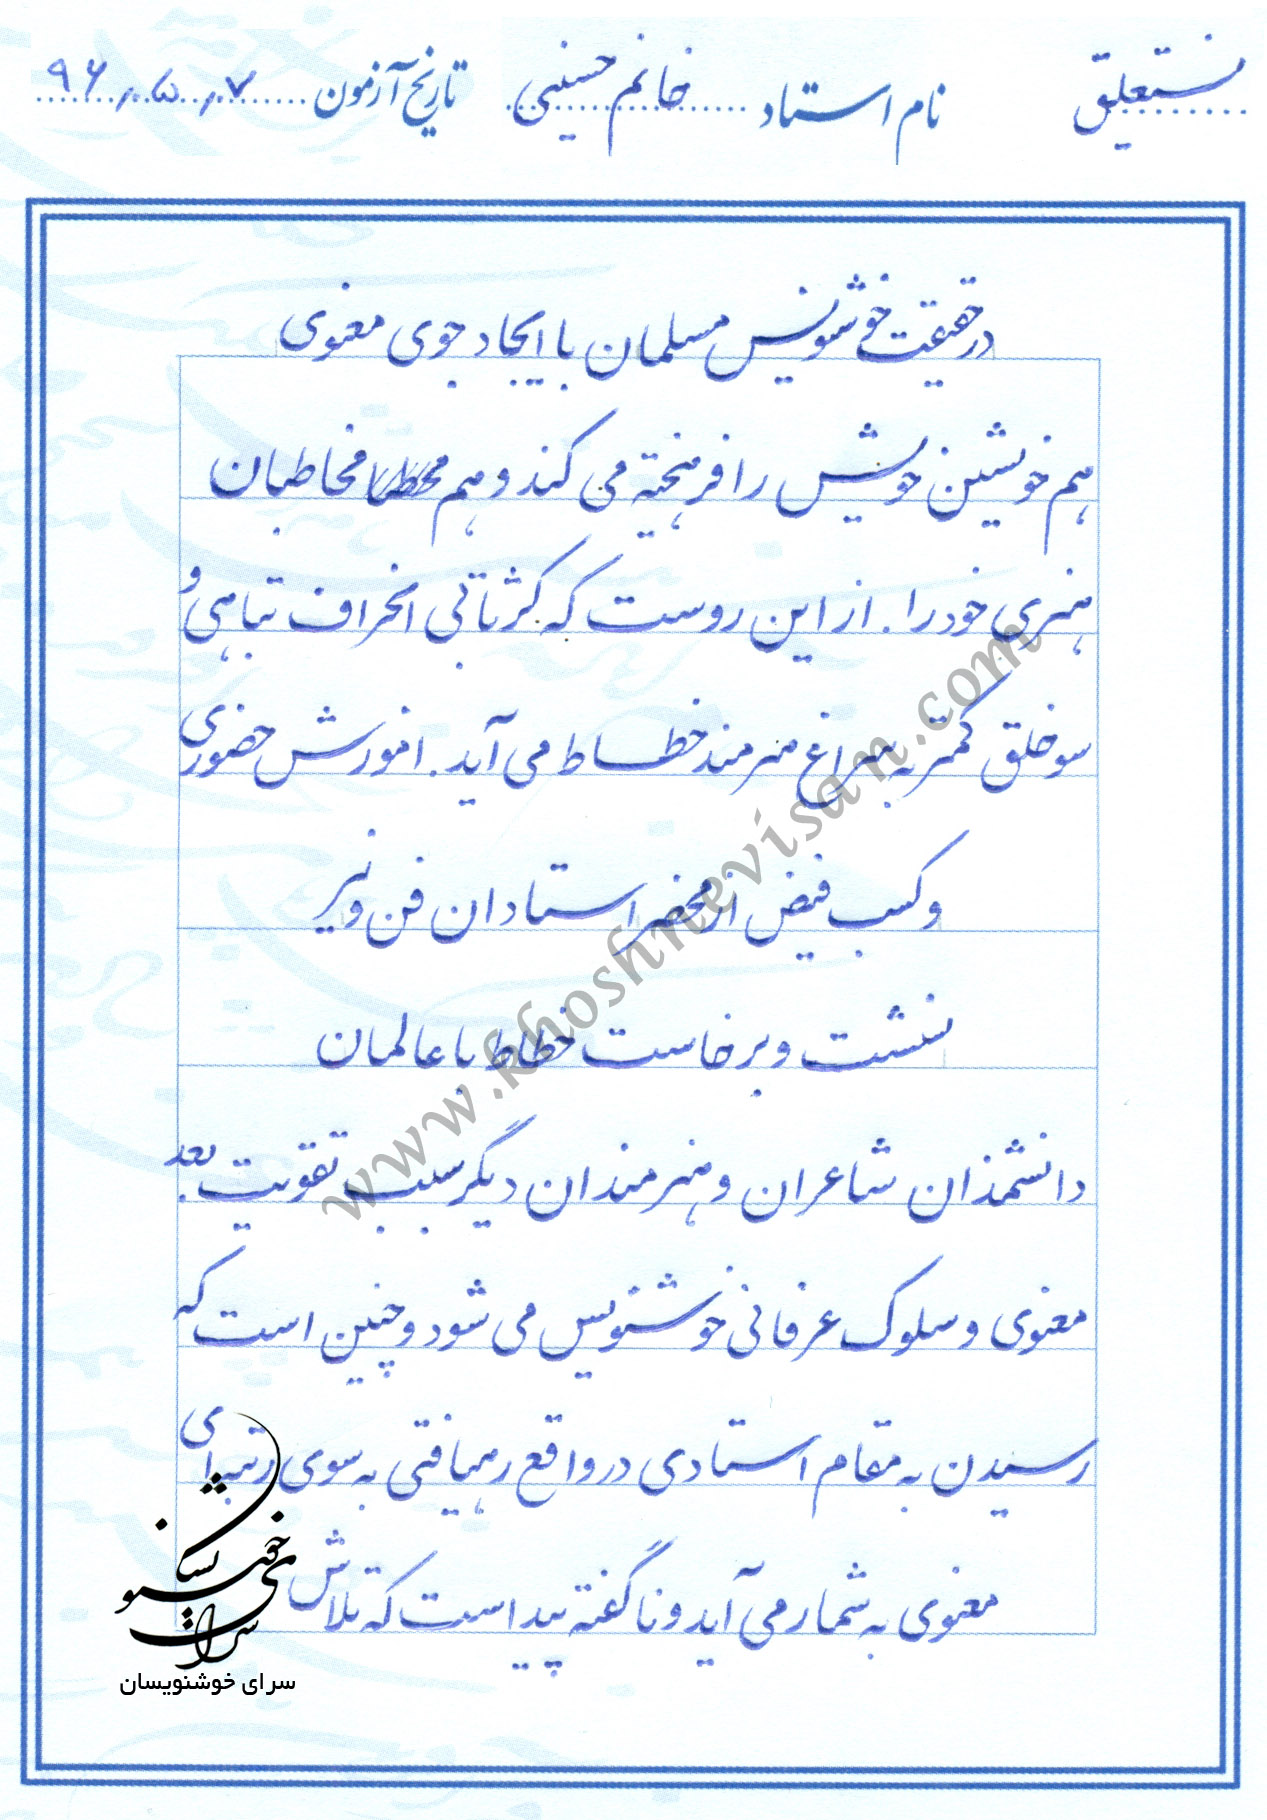 نستعلیق نام استاد خانم حسینی تاریخ آزمون ۹۶/۵/۷
در حقیقت خوشنویس مسلمان با ایجاد جوی معنوی
هم خویشتن خویش را فرهیخته می کند و هم مخاطبان
هنری خود را. از این روست که کژتابی انحراف تباهی و
سو خلق کمتر به سراغ هنرمند خطاط می آید. اموزش حضوری
و کسب فیض از محضر استادان فن و نیز
نشست و برخاست خطاط با عالمان
دانشمندان شاعران و هنرمندان دیگر سبب تقویت بعد
معنوی و سلوک عرفانی خوشنویس می شود و چنین است که
رسیدن به مقام استادی در واقع رهیافتی به سوی رتبه ای
معنوی به شمار می آید و نا گفته پیداست که تلاش
سرای خوشنویسان
سرای خوشنویسان
www.khoshnevisan.com